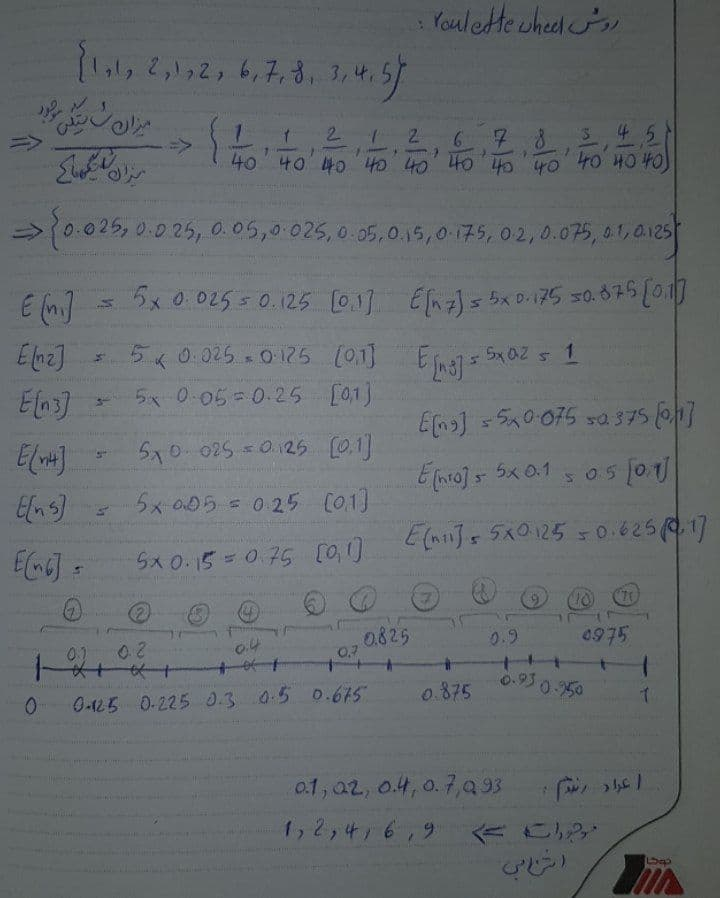 روش Roulette wheel :
{1,1, 2,1,2, 6,7,8, 3,4,5}
⇒ میزان شایستگی موجود / میزان شایستگی ها ⇒ {1/40, 1/40, 2/40, 1/40, 2/40, 6/40, 7/40, 8/40, 3/40, 4/40, 5/40}
⇒ {0.025, 0.025, 0.05, 0.025, 0.05, 0.15, 0.175, 0.2, 0.075, 0.1, 0.125}
E[n1] = 5 x 0.025 = 0.125 [0,1]
E[n2] = 5 x 0.025 = 0.125 [0,1]
E[n3] = 5x 0.05 = 0.25 [0,1]
E[n4] = 5x0.025 = 0.125 [0,1]
E[n5] = 5x0.05 = 0.25 [0,1]
E[n6] = 5x0.15 = 0.75 [0,1]
E[n7] = 5x0.175 = 0.875 [0,1]
E[n8] = 5x0.2 = 1
E[n9] = 5x0.075 = 0.375 [0,1]
E[n10] = 5x0.1 = 0.5 [0,1]
E[n11] = 5x0.125 = 0.625 [0,1]
1 2 3 4 5 6 7 8 9 10 11
0.1 0.2 0.4 0.7 0.825 0.9 0.975
0 0.125 0.225 0.3 0.5 0.675 0.875 0.93 0.950 1
اعداد رندم : 0.1, 0.2, 0.4, 0.7, 0.93
موجودات ⇐ 1, 2, 4, 6, 9
انتخابی